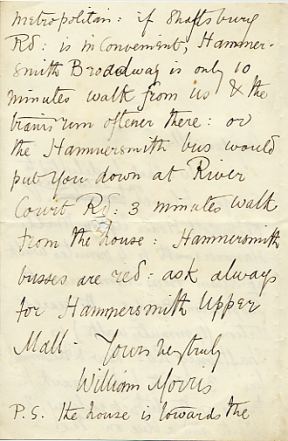 metropolitan: if Shaftsbury
Rd: is inconvenient, Hammer-
smith Broadway is only 10
minutes walk from us & the
trains run oftener there: or
the Hammersmith bus would
put you down at River
Court Rd: 3 minutes walk
from the house: Hammersmith
busses are red: ask always
for Hammersmith Upper
Mall. Yours very truly
William Morris
P.S. the house is towards the